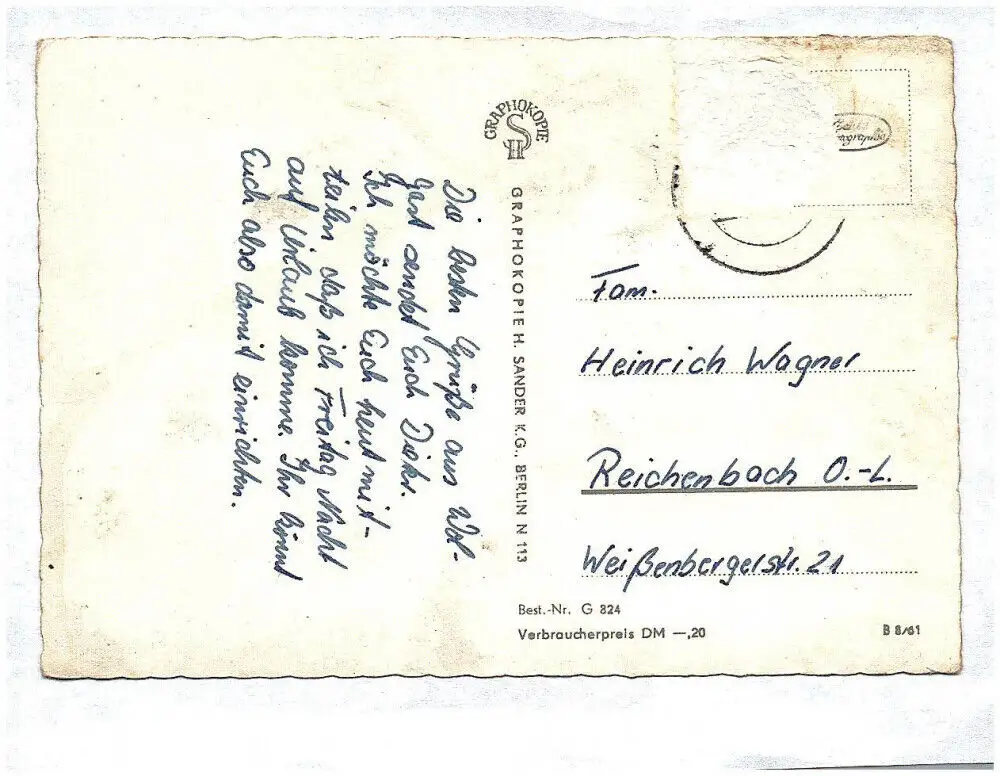 Die besten Grüße aus Wol-
gast sendet Euch Dieter.
Ich möchte Euch heut mit-
teilen daß ich Freitag Nacht
auf Urlaub komme. Ihr könnt
Euch also damit einrichten.
GRAPHOKOPIE
H S
GRAPHOKOPIE H. SANDER K.G., BERLIN N 113
Fam.
Heinrich Wagner
Reichenbach O.-L.
Weißenbergerstr. 21
Best.-Nr. G 824
Verbraucherpreis DM —,20
B 8/61